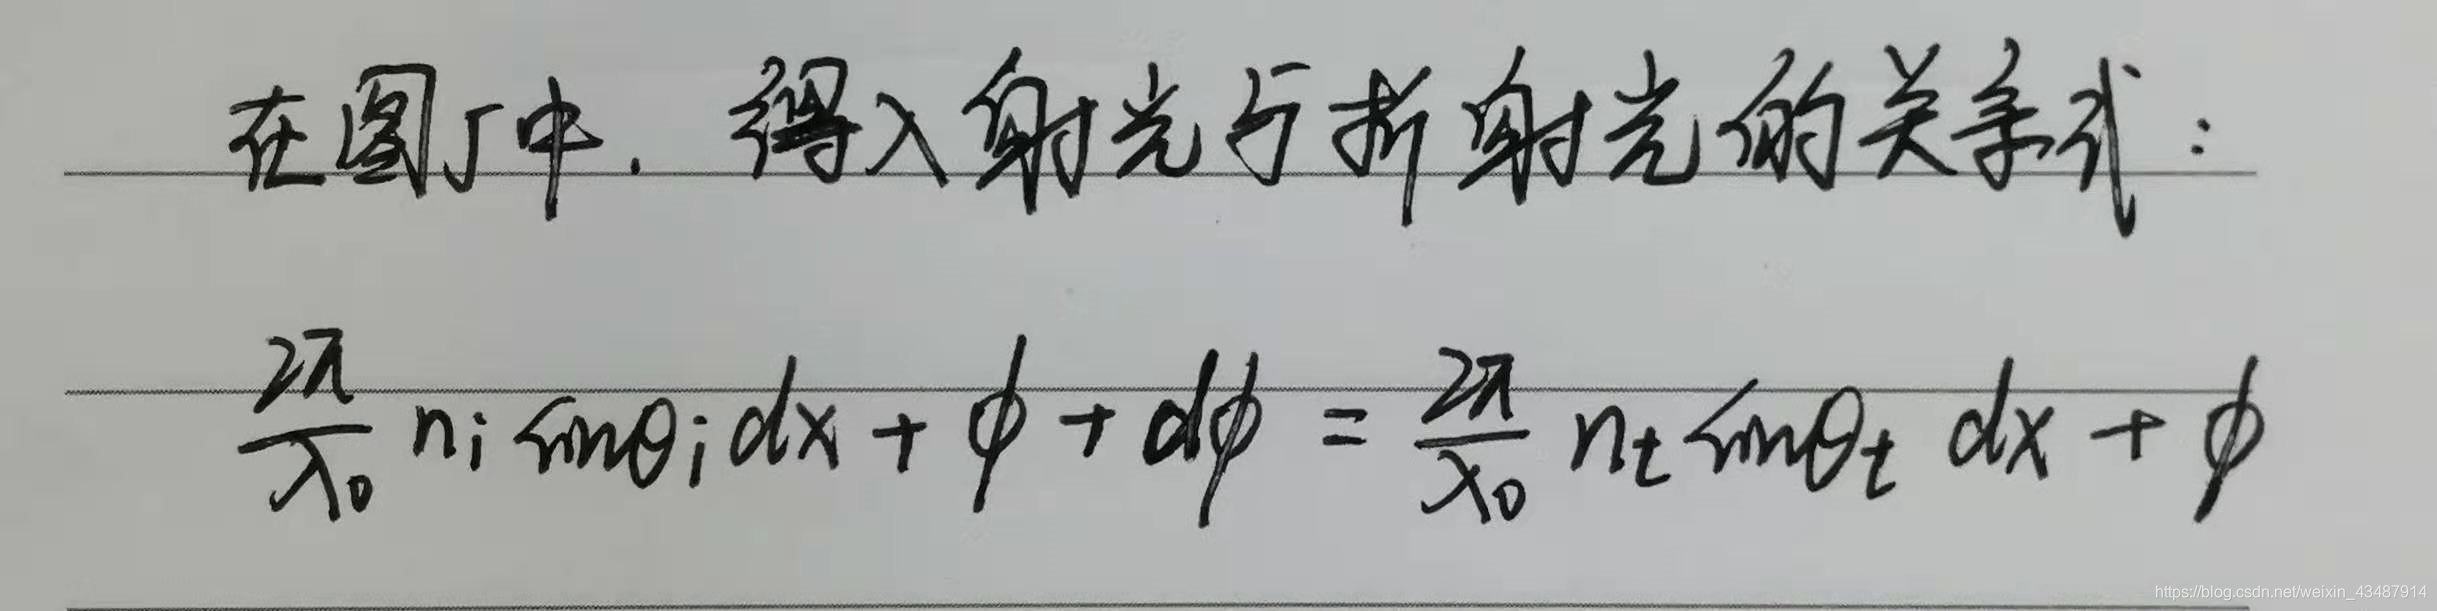 在图J中. 得入射光与折射光的关系式:
2π/λ₀ nᵢ sinθᵢ dx + φ + dφ = 2π/λ₀ nₜ sinθₜ dx + φ
https://blog.csdn.net/weixin_43487914